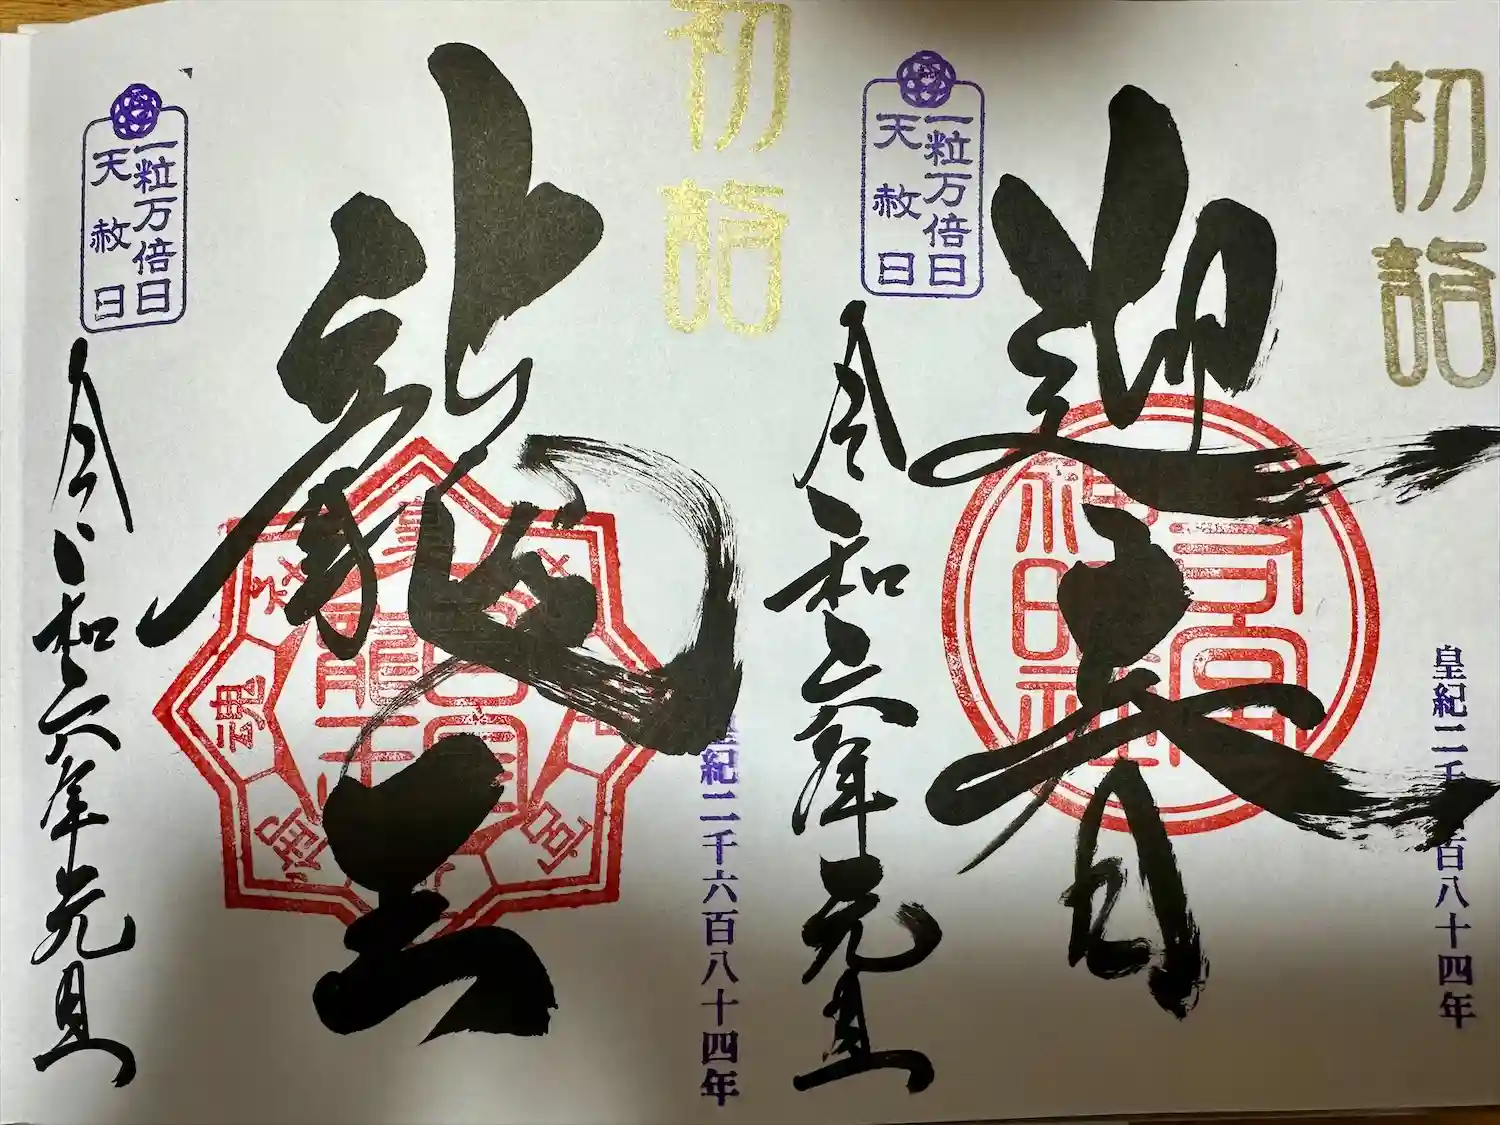 初詣
皇紀二千六百八十四年
迎春
神明社
一粒万倍日
天赦日
令和六年元旦
初詣
皇紀二千六百八十四年
龍
龍王
一粒万倍日
天赦日
令和六年元旦